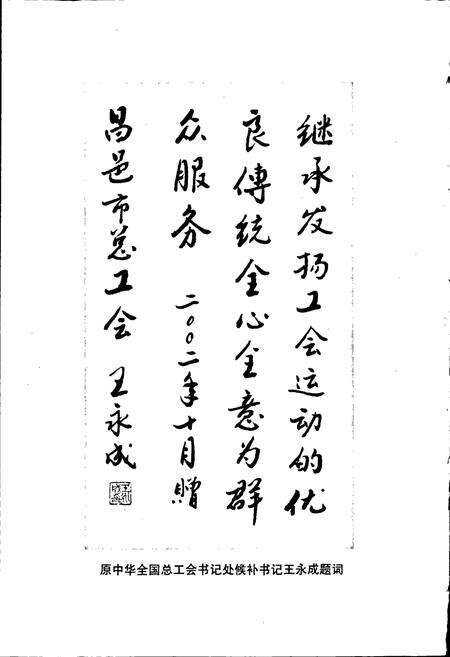 继承发扬工会运动的优
良傳统全心全意为群
众服务 二〇〇二年十月贈
昌邑市总工会 王永成
原中华全国总工会书记处候补书记王永成题词